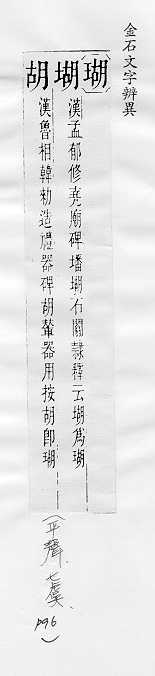 金石文字辨異
瑚
漢孟郁修堯廟碑墦石闕隸釋云爲瑚
胡
漢魯相韓勑造禮器碑胡輦器用按胡卽瑚
(平聲、七虞、p96)